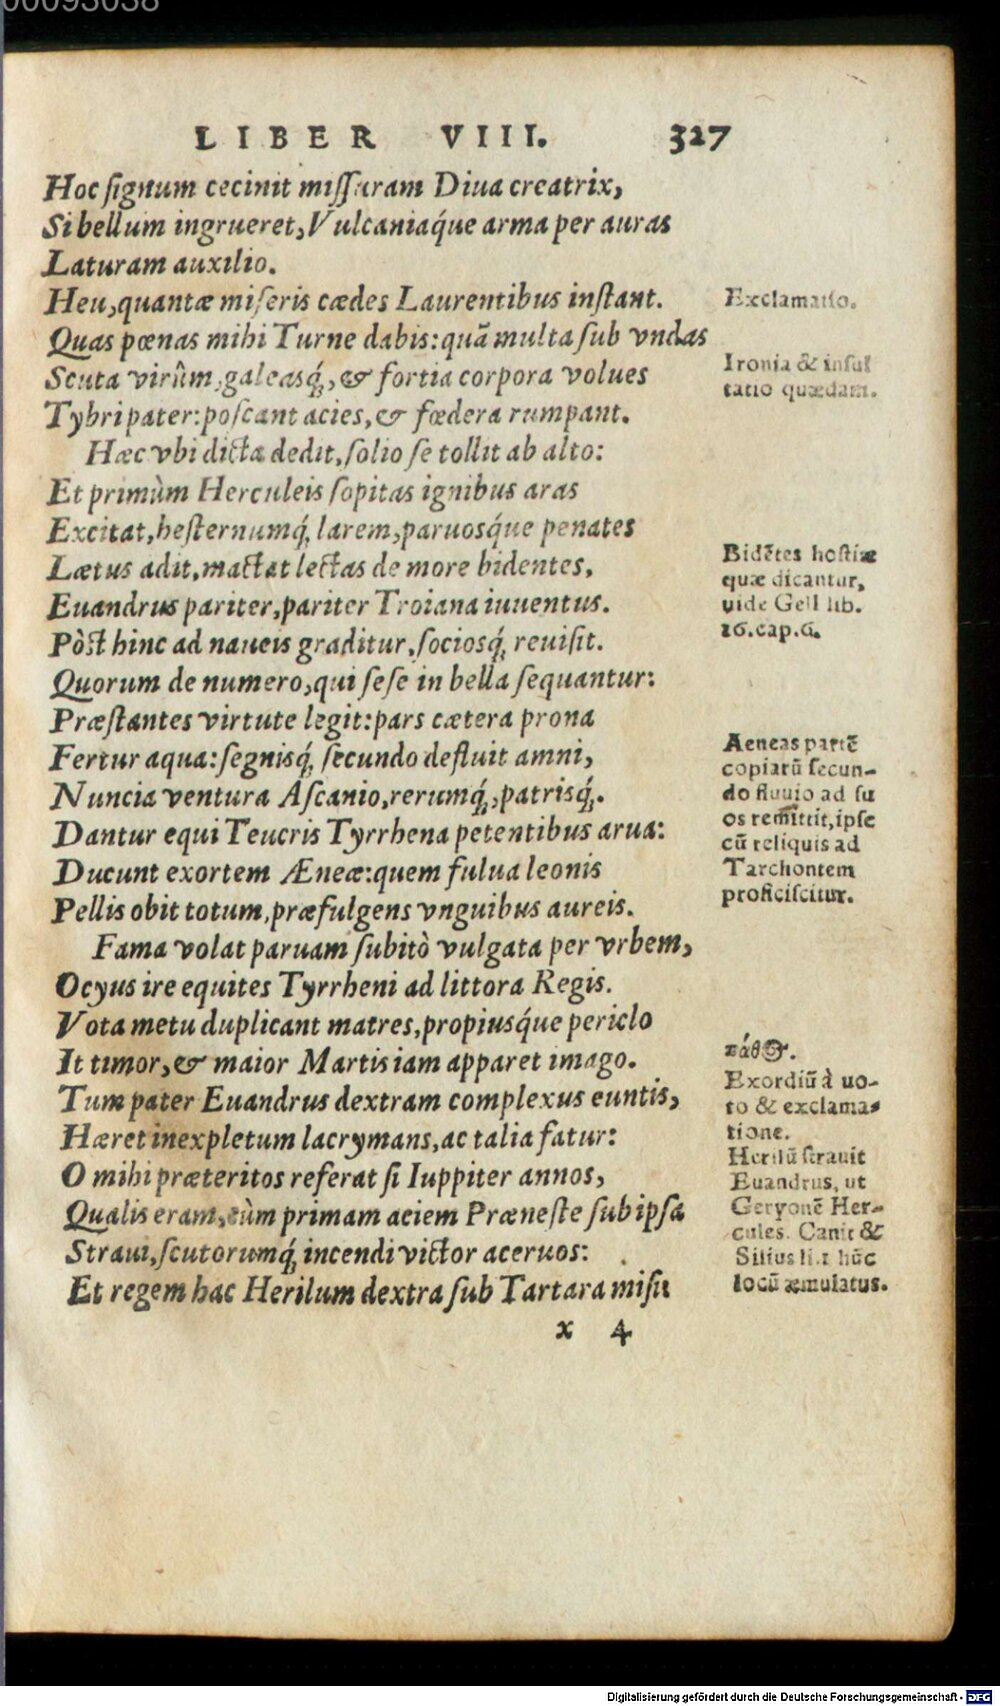 00093038
LIBER VIII. 327
Hoc ſignum cecinit miſſuram Diua creatrix,
Si bellum ingrueret, Vulcaniaq́ue arma per auras
Laturam auxilio.
Heu, quantæ miſeris cædes Laurentibus inſtant.
Quas pœnas mihi Turne dabis: quã multa ſub vndas
Scuta virûm, galeasq́, & fortia corpora volues
Tybri pater: poſcant acies, & fœdera rumpant.
Hæc vbi dicta dedit, ſolio ſe tollit ab alto:
Et primùm Herculeis ſopitas ignibus aras
Excitat, heſternumq́, larem, paruosq́ue penates
Lætus adit, mactat lectas de more bidentes,
Euandrus pariter, pariter Troiana iuuentus.
Pòst hinc ad naueis graditur, ſociosq́, reuiſit.
Quorum de numero, qui ſeſe in bella ſequantur:
Præſtantes virtute legit: pars cætera prona
Fertur aqua: ſegnisq́, ſecundo defluit amni,
Nuncia ventura Aſcanio, rerumq́, patrisq́.
Dantur equi Teucris Tyrrhena petentibus arua:
Ducunt exortem Æneæ: quem fulua leonis
Pellis obit totum, præfulgens vnguibus aureis.
Fama volat paruam ſubitò vulgata per vrbem,
Ocyus ire equites Tyrrheni ad littora Regis.
Vota metu duplicant matres, propiusq́ue periclo
It timor, & maior Martis iam apparet imago.
Tum pater Euandrus dextram complexus euntis,
Hæret inexpletum lacrymans, ac talia fatur:
O mihi præteritos referat ſi Iuppiter annos,
Qualis eram, cùm primam aciem Præneſte ſub ipſa
Straui, ſcutorumq́, incendi victor aceruos:
Et regem hac Herilum dextra ſub Tartara miſit
x 4
Exclamatio.
Ironia & inſul
tatio quædam.
Bidẽtes hoſtiæ
quæ dicantur,
uide Gell lib.
16. cap. 6.
Aeneas partẽ
copiarũ ſecun-
do fluuio ad ſu
os remittit, ipſe
cũ reliquis ad
Tarchontem
proficiſcitur.
πάθος.
Exordiũ à uo-
to & exclama-
tione.
Herilũ ſtrauit
Euandrus, ut
Geryonẽ Her-
cules. Canit &
Silius li.1 hũc
locũ æmulatus.
Digitalisierung gefördert durch die Deutsche Forschungsgemeinschaft - DFG